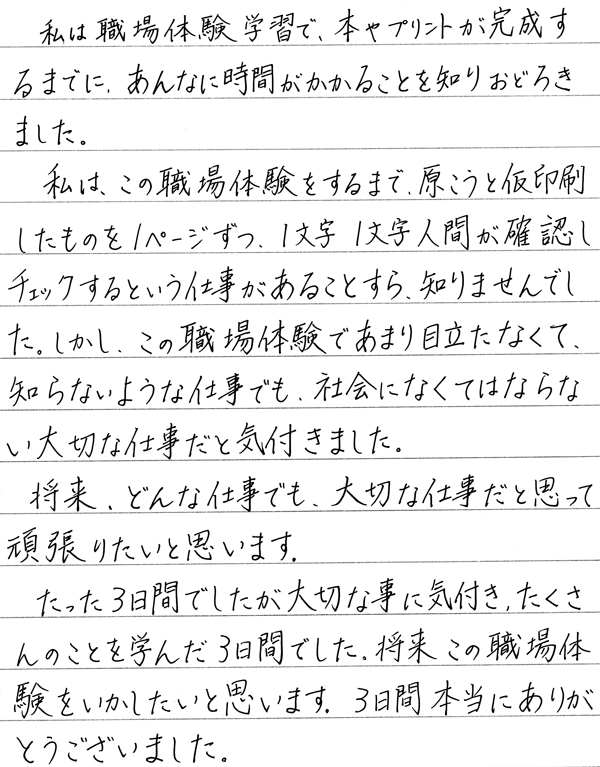 私は職場体験学習で、本やプリントが完成す
るまでに、あんなに時間がかかることを知りおどろき
ました。
私は、この職場体験をするまで、原こうと仮印刷
したものを1ページずつ、1文字1文字人間が確認し
チェックするという仕事があることすら、知りませんでし
た。しかし、この職場体験であまり目立たなくて、
知らないような仕事でも、社会になくてはならな
い大切な仕事だと気付きました。
将来、どんな仕事でも、大切な仕事だと思って
頑張りたいと思います。
たった3日間でしたが大切な事に気付き、たくさ
んのことを学んだ3日間でした。将来この職場体
験をいかしたいと思います。3日間本当にありが
とうございました。